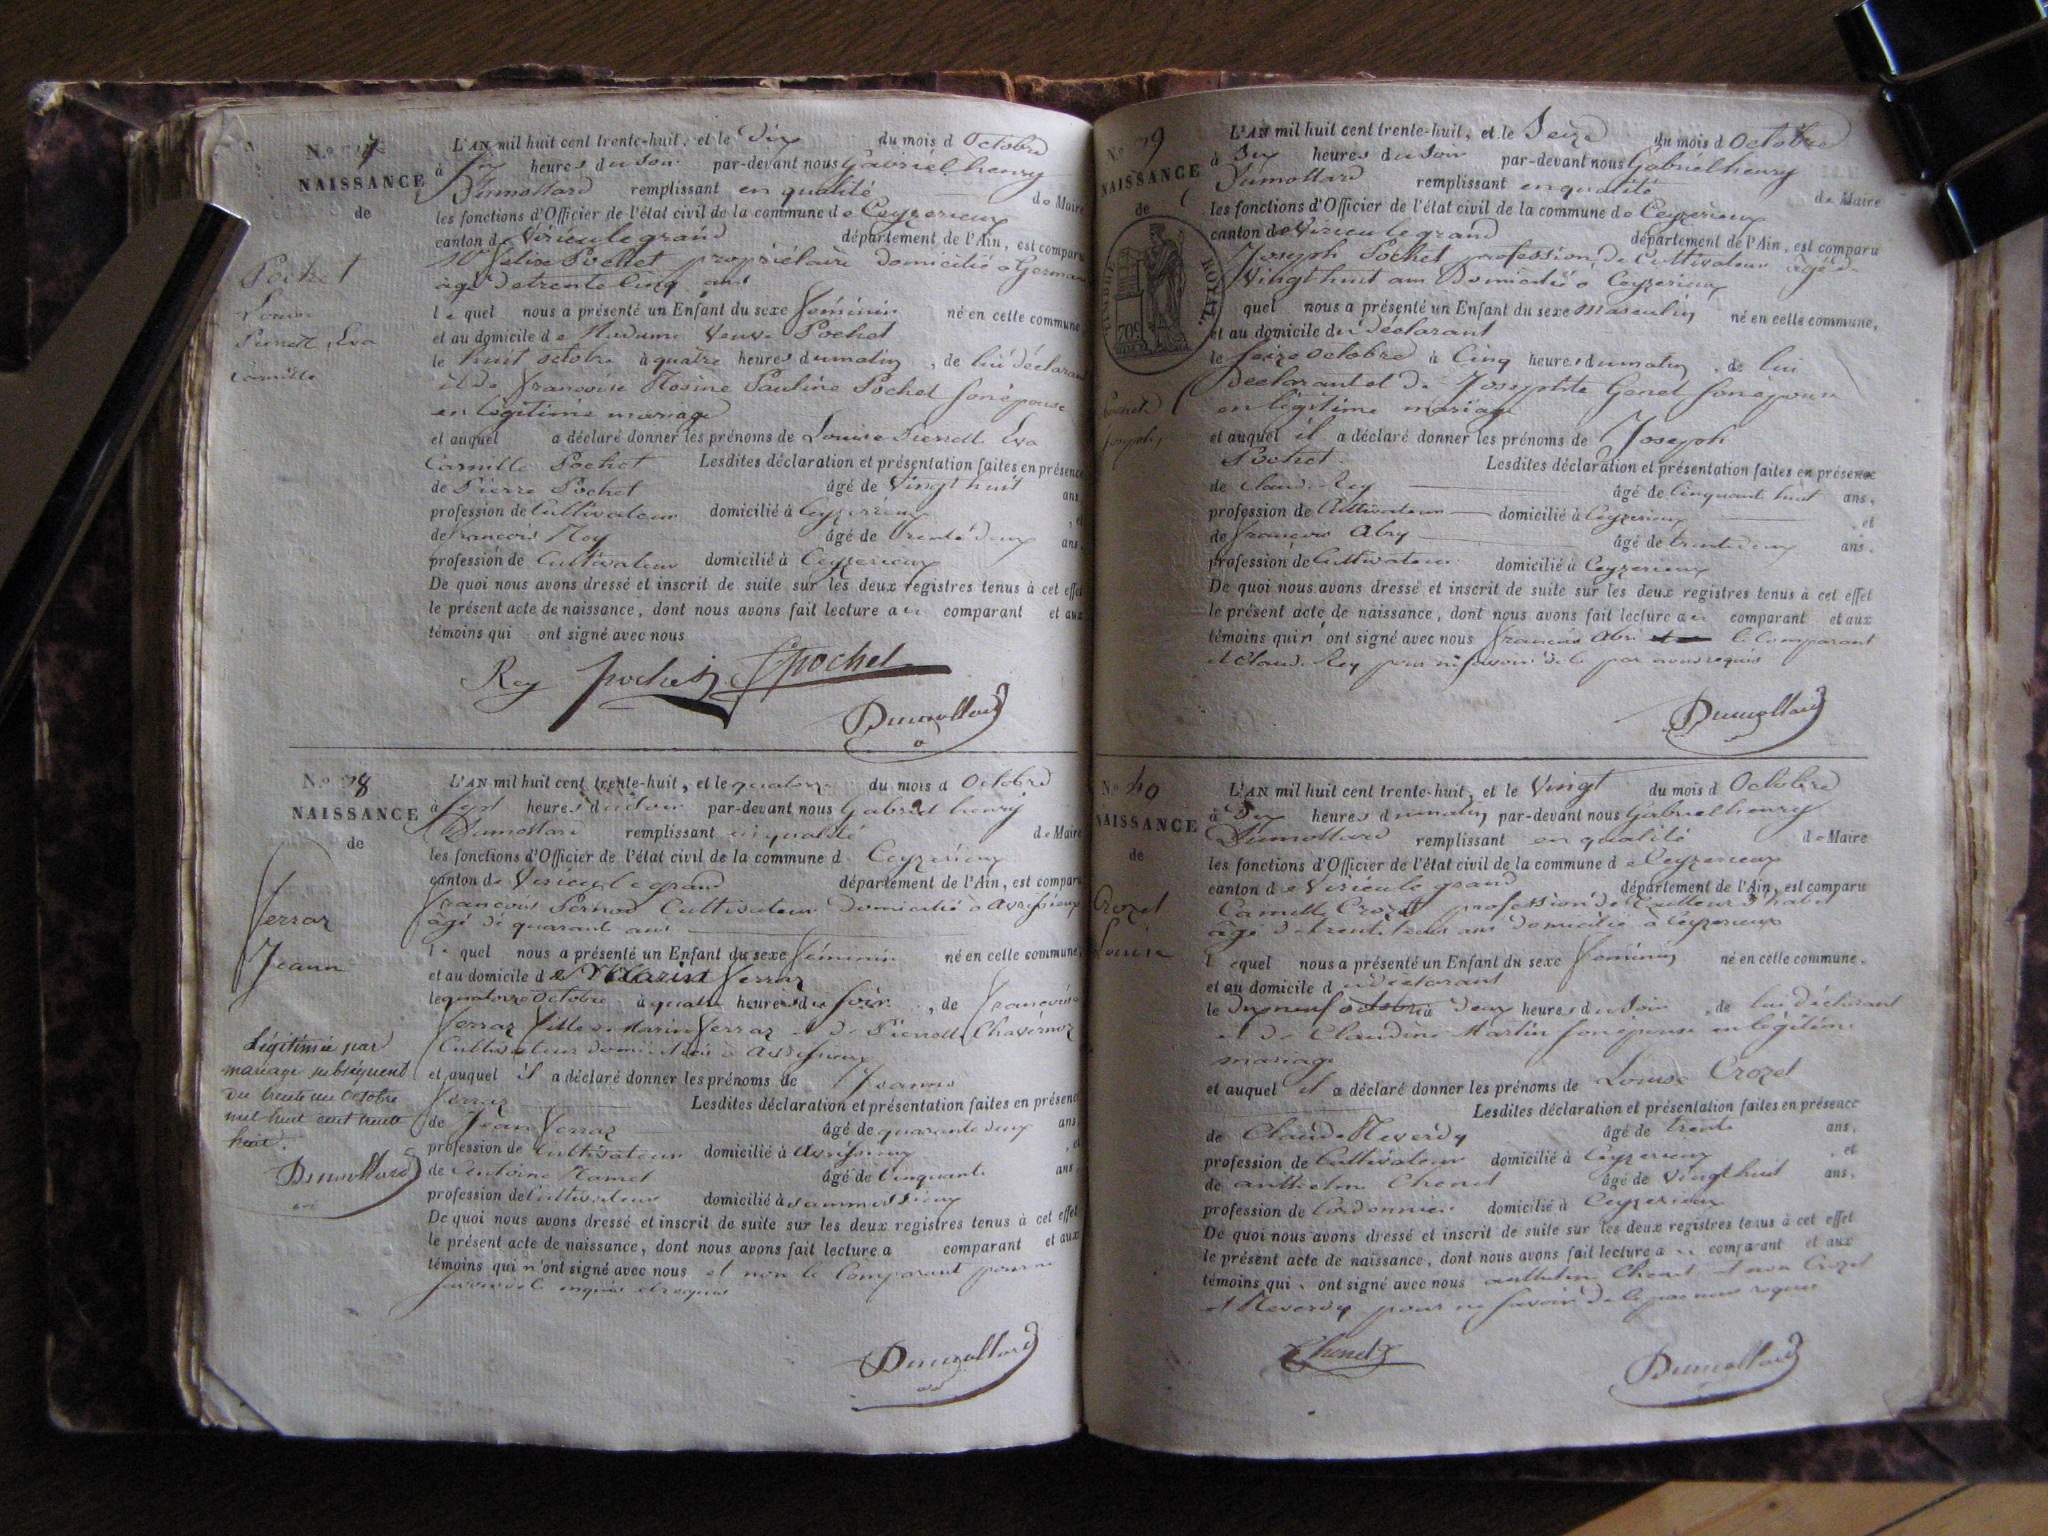 NAISSANCE
de
Pochet
Louise
Camille
L'AN mil huit cent trente-huit, et le Dix du mois d Octobre
à heures du soir par-devant nous Gabriel henry
Dumollard remplissant en qualité de Maire
les fonctions d'Officier de l'état civil de la commune de Ceyzerieux
canton de Virieu le grand département de l'Ain, est comparu
Pochet propriétaire domicilié a
âgé de trente cinq ans
le quel nous a présenté un Enfant du sexe féminin né en cette commune,
et au domicile de Madame Veuve Pochet
le huit octobre à quatre heures du matin, de lui déclarant
et de francoise Rosine Pauline Pochet son épouse
en légitime mariage
et auquel a déclaré donner les prénoms de Louise Pierrette Eva
Camille Pochet Lesdites déclaration et présentation faites en présence
de Pierre Pochet âgé de Vingt huit ans,
profession de Cultivateur domicilié à Ceyzerieux, et
de francois Rey âgé de trente deux ans,
profession de Cultivateur domicilié à Ceyzerieux
De quoi nous avons dressé et inscrit de suite sur les deux registres tenus à cet effet
le présent acte de naissance, dont nous avons fait lecture au comparant et aux
témoins qui ont signé avec nous
Rey Pochet Pochet
Dumollard
N.o 38
NAISSANCE
de
Ferraz
Jeanne
Légitimée par
mariage subséquent
du trente un Octobre
mil huit cent trente
huit.
Dumollard
L'AN mil huit cent trente-huit, et le quatorze du mois d Octobre
à sept heures du soir par-devant nous Gabriel henry
Dumollard remplissant en qualité de Maire
les fonctions d'Officier de l'état civil de la commune d Ceyzerieux
canton de Virieu le grand département de l'Ain, est comparu
francois Pernod Cultivateur domicilié a Avrissieux
âgé de quarante ans
le quel nous a présenté un Enfant du sexe féminin né en cette commune,
et au domicile de Marin ferraz
le quatorze Octobre à quatre heures du soir, de francoise
ferraz fille de Marin ferraz et de Pierrette
Cultivateur domiciliés à Avrissieux
et auquel il a déclaré donner les prénoms de Jeanne
ferraz Lesdites déclaration et présentation faites en présence
de Jean ferraz âgé de quarante deux ans,
profession de Cultivateur domicilié à Avrissieux, et
de Antoine âgé de Cinquante ans,
profession de Cultivateur domicilié à
De quoi nous avons dressé et inscrit de suite sur les deux registres tenus à cet effet
le présent acte de naissance, dont nous avons fait lecture a comparant et aux
témoins qui n'ont signé avec nous et non le Comparant pour ne
savoir de ce enquis et requis
Dumollard
N.o 39
NAISSANCE
de
TIMBRE ROYAL
70c
Pochet
Joseph
L'AN mil huit cent trente-huit, et le Seize du mois d Octobre
à Six heures du soir par-devant nous Gabriel henry
Dumollard remplissant en qualité de Maire
les fonctions d'Officier de l'état civil de la commune de Ceyzerieux
canton de Virieu le grand département de l'Ain, est comparu
Joseph Pochet profession de Cultivateur âgé de
Vingt huit ans Domicilié à Ceyzerieux
quel nous a présenté un Enfant du sexe Masculin né en cette commune,
et au domicile du déclarant
le seize octobre à Cinq heures du matin, de lui
Declarant et de Josephte Genet son épouse
en légitime mariage
et auquel il a déclaré donner les prénoms de Joseph
Pochet Lesdites déclaration et présentation faites en présence
de Claude Rey âgé de Cinquante huit ans,
profession de Cultivateur domicilié à Ceyzerieux, et
de francois Abry âgé de trente deux ans,
profession de Cultivateur domicilié à Ceyzerieux
De quoi nous avons dressé et inscrit de suite sur les deux registres tenus à cet effet
le présent acte de naissance, dont nous avons fait lecture au comparant et aux
témoins qui n'ont signé avec nous francois Abri le Comparant
et Claude Rey pour ne savoir de ce par nous requis
Dumollard
N.o 40
NAISSANCE
de
Crozet
Louise
L'AN mil huit cent trente-huit, et le Vingt du mois d Octobre
à Dix heures du matin par-devant nous Gabriel henry
Dumollard remplissant en qualité de Maire
les fonctions d'Officier de l'état civil de la commune de Ceyzerieux
canton de Virieu le grand département de l'Ain, est comparu
Camille Crozet profession de tailleur d'habit
âgé de trente ans domicilié à Ceyzerieux
lequel nous a présenté un Enfant du sexe féminin né en cette commune,
et au domicile du declarant
le dix neuf octobre à deux heures du soir, de lui déclarant
et de Claudine Martin son épouse en légitime
mariage
et auquel il a déclaré donner les prénoms de Louise Crozet
Lesdites déclaration et présentation faites en présence
de Claude Reverdy âgé de trente ans,
profession de Cultivateur domicilié à Ceyzerieux, et
de anthelme Chenet âgé de Vingt huit ans,
profession de Cordonnier domicilié à Ceyzerieux
De quoi nous avons dressé et inscrit de suite sur les deux registres tenus à cet effet
le présent acte de naissance, dont nous avons fait lecture a comparant et aux
témoins qui ont signé avec nous anthelme Chenet et non Crozet
et Reverdy pour ne savoir de ce par nous requis
Chenet
Dumollard